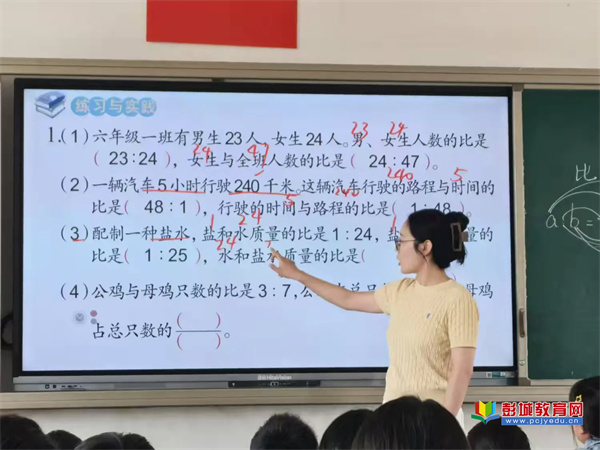 练习与实践
1.(1)六年级一班有男生23人、女生24人。男、女生人数的比是
( 23:24 ),女生与全班人数的比是( 24:47 )。
23 24
24 47
(2)一辆汽车5小时行驶240千米。这辆汽车行驶的路程与时间的
比是( 48:1 ),行驶的时间与路程的比是( 1:48 )。
240 5
5 240
(3)配制一种盐水,盐和水质量的比是1:24,盐 量的
比是( 1:25 ),水和盐水质量的比是(
1 24
24
1
(4)公鸡与母鸡只数的比是3:7,公 母鸡
占总只数的( )/( )。
HiteVision
比
a:b=
彭城教育网
www.pcjyedu.cn